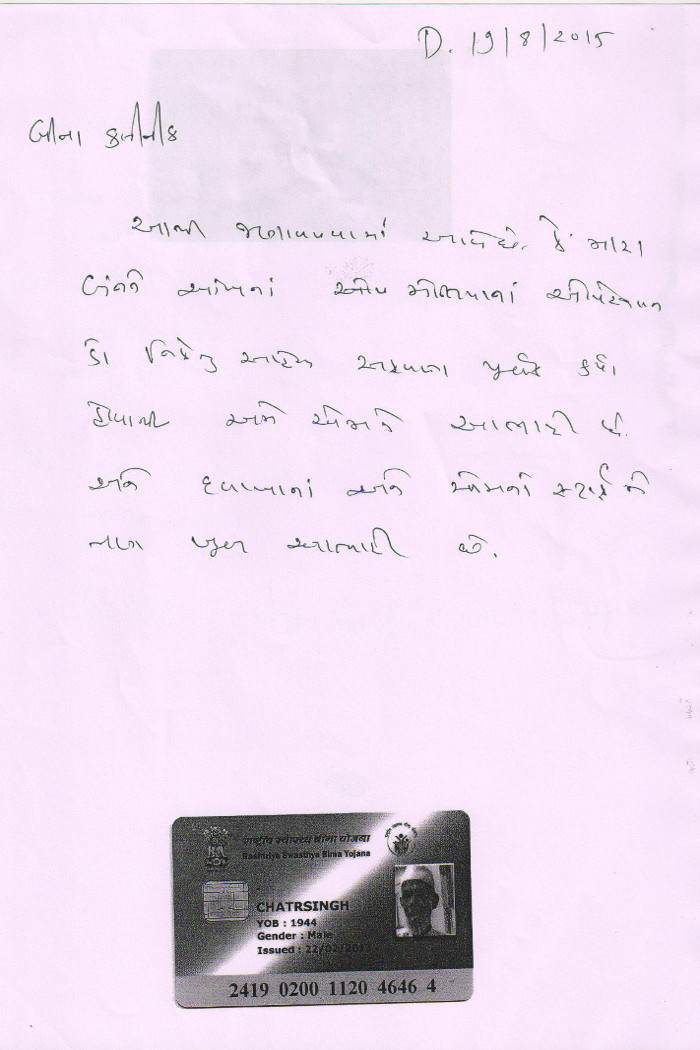 D. 19/8/2015
બીના ક્લીનીક
આથી જણાવવામાં આવે છે. કે મારા
બંન્ને આંખનાં ઓપરેશન
ડો સાહેબ કર્યા
હોવાથી અમે એમના આભારી છે.
અને દવાખાનાં અને એમનાં સ્ટાફ ને
ખુબ આભારી છે.
राष्ट्रीय स्वास्थ्य बीमा योजना
Rashtriya Swasthya Bima Yojana
CHATRSINGH
YOB : 1944
Gender : Male
Issued : 22/02/201
2419 0200 1120 4646 4